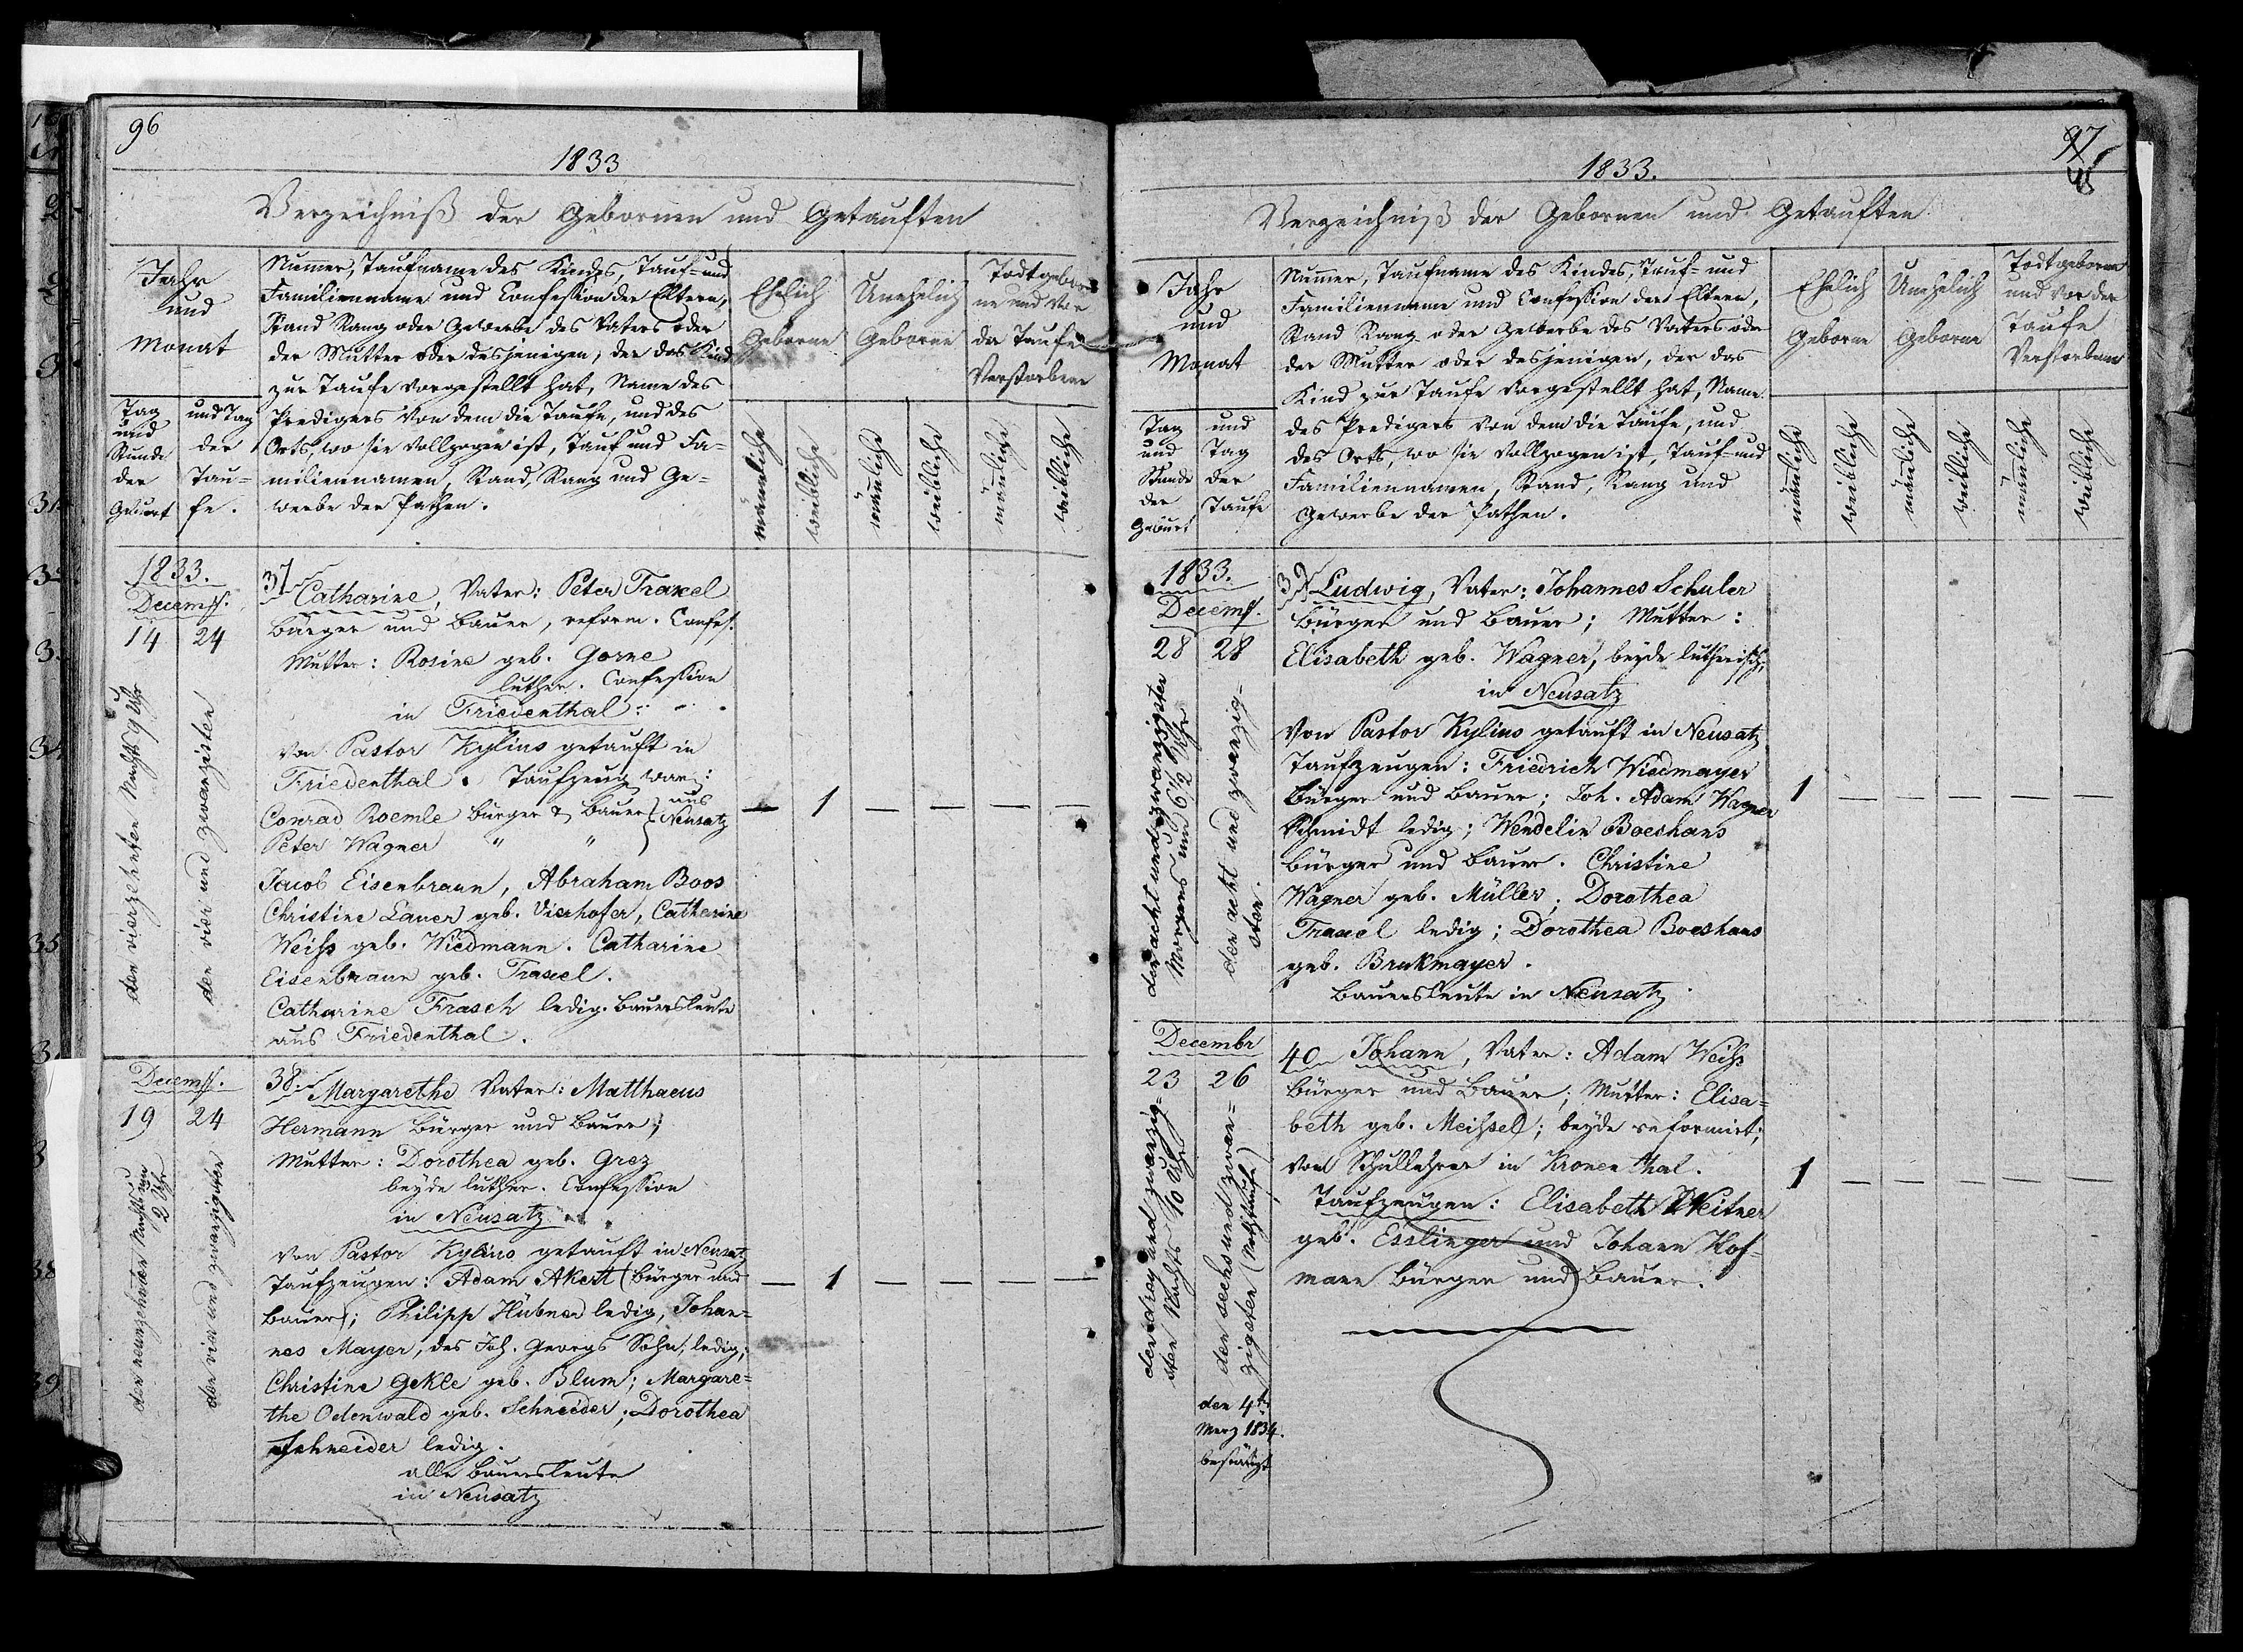 96
1833
Verzeichniß der Gebornen und Getauften
Jahr
und
Monat
Tag
und
Stunde
der
Geburt
und Tag
der
Tau=
fe.
Numer, Taufname des Kindes, Tauf= und
Familienname und Confession der Eltern,
Stand Rang oder Gewerbe des Vaters oder
der Mutter oder desjenigen, der das Kind
zur Taufe vorgestellt hat, Name des
Predigers von dem die Taufe, und des
Orts, wo sie vollzogen ist, Tauf und Fa=
miliennamen, Stand, Rang und Ge=
werbe der Pathen.
Ehelich
Geborne
Unehelich
Geborne
Todtgebor
ne und vor
der Taufe
Verstorbene
männliche
weibliche
männliche
weibliche
männliche
weibliche
1833.
Decembr.
14 24
den vierzehnten Nachts 9 Uhr
den vier und zwanzigsten
37 Catharine, Vater: Peter Traxel
Bürger und Bauer, reform. Confes.
Mutter: Rosine geb. Gorne
luther. Confession
in Friedenthal.
Von Pastor Kylius getauft in
Friedenthal. Taufzeug war:
Conrad Roemle Bürger & Bauer } aus
Peter Wagner " " } Neusatz
Jacob Eisenbraun, Abraham Boos
Christine Lauer geb. Vierhofer, Catharine
Weihs geb. Wiedmann. Catharine
Eisenbraun geb. Traxel.
Catharine Frasch ledig. Bauersleute
aus Friedenthal.
— 1 — — — —
Decembr.
19 24
den neunzehnten Nachts um
2 Uhr
den vier und zwanzigsten
38. Margarethe Vater: Matthaeus
Hermann Bürger und Bauer;
Mutter: Dorothea geb. Grez
beyde luther. Confession
in Neusatz.
Von Pastor Kylius getauft in Neusatz
Taufzeugen: Adam Akert (Bürger und
Bauer); Philipp Hübner ledig, Johan=
nes Mayer, des Joh. Georgs Sohn, ledig;
Christine Gekle geb. Blum; Margare=
the Odenwald geb. Schneider; Dorothea
Schneider ledig.
alle Bauersleute
in Neusatz
— 1 — — — —
97
1833.
Verzeichniß der Gebornen und Getauften
Jahr
und
Monat
Tag
und
Stunde
der
Geburt
und
Tag
der
Taufe
Numer, Taufname des Kindes, Tauf= und
Familienname und Confession der Eltern,
Stand Rang oder Gewerbe des Vaters oder
der Mutter oder desjenigen, der das
Kind zur Taufe vorgestellt hat, Name
des Predigers von dem die Taufe, und
des Orts, wo sie vollzogen ist, Tauf= und
Familiennamen, Stand, Rang und
Gewerbe der Pathen.
Ehelich
Geborne
Unehelich
Geborne
Todtgeborne
und vor der
Taufe
Verstorbene
männliche
weibliche
männliche
weibliche
männliche
weibliche
1833.
Decembr.
28 28
den acht und zwanzigsten
Morgens um 6½ Uhr
den acht und zwanzig=
sten.
39 Ludwig, Vater: Johannes Schuler
Bürger und Bauer; Mutter:
Elisabeth geb. Wagner, beyde lutherisch;
in Neusatz
Von Pastor Kylius getauft in Neusatz
Taufzeugen: Friedrich Wiedmayer
Bürger und Bauer; Joh. Adam Wagner
Schmidt ledig; Wendelin Boeshans
Bürger und Bauer. Christine
Wagner geb. Müller; Dorothea
Traxel ledig; Dorothea Boeshans
geb. Brukmayer.
Bauersleute in Neusatz.
1 — — — — —
Decembr
23 26
den drey und zwanzig=
sten Nachts 10 Uhr
den sechs und zwan=
zigsten (Nothtaufe)
den 4ten
Merz 1834.
bestätigt
40 Johann, Vater: Adam Weihs
Bürger und Bauer; Mutter: Elisa=
beth geb. Meihsel; beyde reformirt;
Von Schullehrer in Kronenthal.
Taufzeugen: Elisabeth Weitner
geb. Esslinger und Johann Hof=
mann Bürger und Bauer.
1 — — — — —